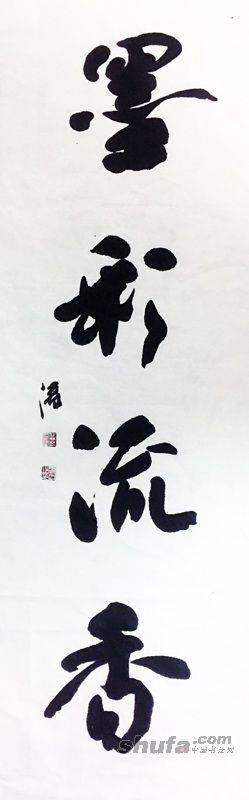 墨彩流香
shufa.com
中国书法网